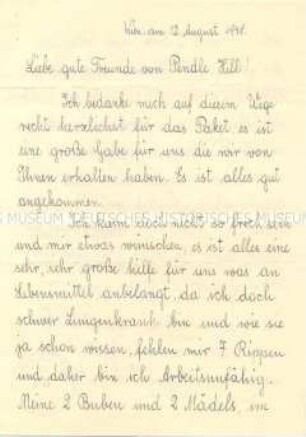 Wien am 12 August 1948.
Liebe gute Freunde von Pendle Hill!
Ich bedanke mich auf diesem Wege
recht herzlichst für das Paket, es ist
eine große Gabe für uns die wir von
Ihnen erhalten haben. Es ist alles gut
angekommen.
MUSEUM DEUTSCHES HISTORISCHES MUSEUM
Ich kann doch nicht so frech sein
und mir etwas wünschen, es ist alles eine
sehr, sehr große hilfe für uns was an
Lebensmittel anbelangt, da ich doch
schwer Lungenkrank bin und wie sie
ja schon wissen, fehlen mir 7 Rippen
und daher bin ich Arbeitsunfähig.
Meine 2 Buben und 2 Mädels, im